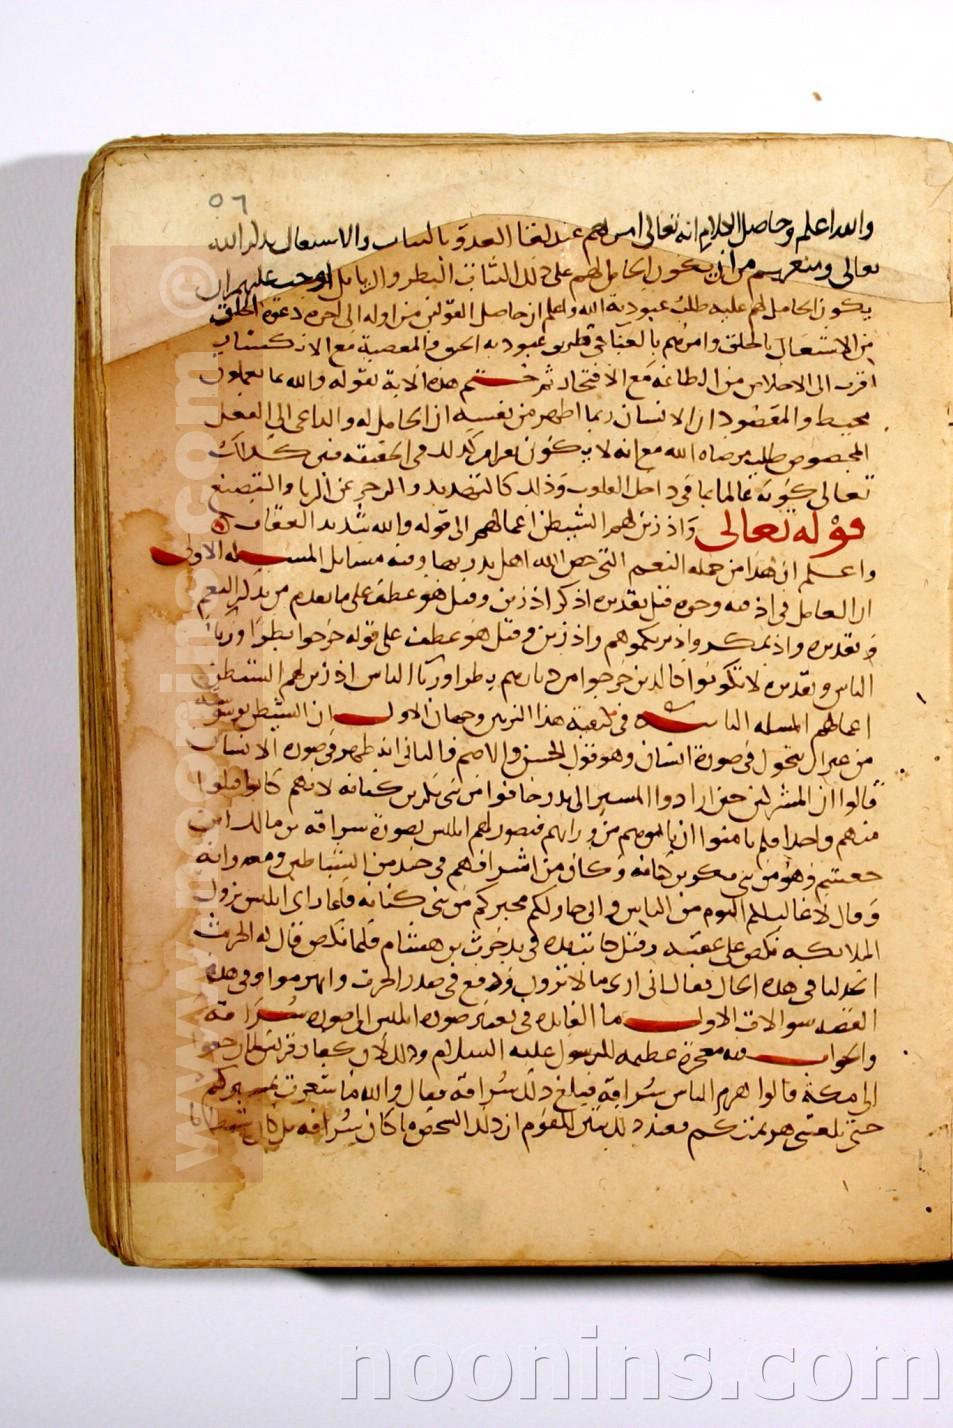 ٥٦
والله اعلم وحاصل الكلام انه تعالى امرهم عند لقا العدو بالثبات والاشتغال بذكر الله
تعالى ومنعهم من ان يكون الحامل لهم على ذلك الثبات البطر والريا بل اوجب عليهم ان
يكون الحامل لهم عليه طلب عبودية الله واعلم ان حاصل القرآن من اوله الى اخره دعوة الخلق
من الاشتغال بالخلق وامرهم بالعنا في طريق عبودية الحق والمعصية مع الانكسار
اقرب الى الاخلاص من الطاعة مع الافتخار ثم ختم هذه الاية بقوله والله بما يعملون
محيط والمقصود ان الانسان ربما اظهر من نفسه ان الحامل له والداعي الى الفعل
المخصوص طلب مرضاه الله مع انه لا يكون الامر كذلك في الحقيقة فبين
تعالى كونه عالما بما في داخل القلوب وذلك كالتهديد والزجر عن الريا والتصنع
قوله تعالى واذ زين لهم الشيطن اعمالهم الى قوله والله شديد العقاب
واعلم ان هذا من جمله النعم التي خص الله اهل بدر بها وفيه مسايل المسيله الاولى
ان العامل في اذ فيه وجوه قيل تقديره اذكر اذ زين وقيل هو عطف على ما تقدم من تذكير النعم
وتقديره واذكروا اذ يريكموهم واذ زين وقيل هو عطف على قوله خرجوا بطرا وريا
الناس وتقديره لا تكونوا كالذين خرجوا من ديارهم بطرا وريا الناس اذ زين لهم الشيطن
اعمالهم المسله الثانيه في كيفية هذا التزيين وجهان الاول ان الشيطن بوسوسته
من غير ان يتحول في صورة انسان وهو قول الحسن والاصم والثاني انه ظهر في صورة الانسان
قالوا ان المشركين حين ارادوا المسير الى بدر خافوا من بني بكر بن كنانه لانهم كانوا قتلوا
منهم واحدا فلم يامنوا ان ياتوهم من ورايهم فتصور لهم ابليس بصورة سراقه بن مالك بن
جعشم وهو من بني بكر بن كنانه وكان من اشرافهم في جند من الشياطين ومعه رايه
وقال لا غالب لكم اليوم من الناس واني جار لكم مجيركم من بني كنانه فلما راى ابليس نزول
الملايكه نكص على عقبيه وقيل كانت يده في يد حرث بن هشام فلما نكص قال له الحرث
اتخذلنا في هذه الحال فقال اني ارى ما لا ترون ودفع في صدر الحرث وانهزموا وفي هذه
القصه سوالات الاول ما الفايده في تغيير صورة ابليس الى صورة سراقة
والجواب فيه معجزة عظيمه للرسول عليه السلام وذلك لان كفار قريش لما رجعوا
الى مكة قالوا هزم الناس سراقة فبلغ ذلك سراقة فقال والله ما شعرت بمسيركم
حتى بلغتني هزيمتكم فعند ذلك تبين للقوم ان ذلك الشخص ما كان سراقه بل كان شيطانا
www.noonins.com ©
noonins.com